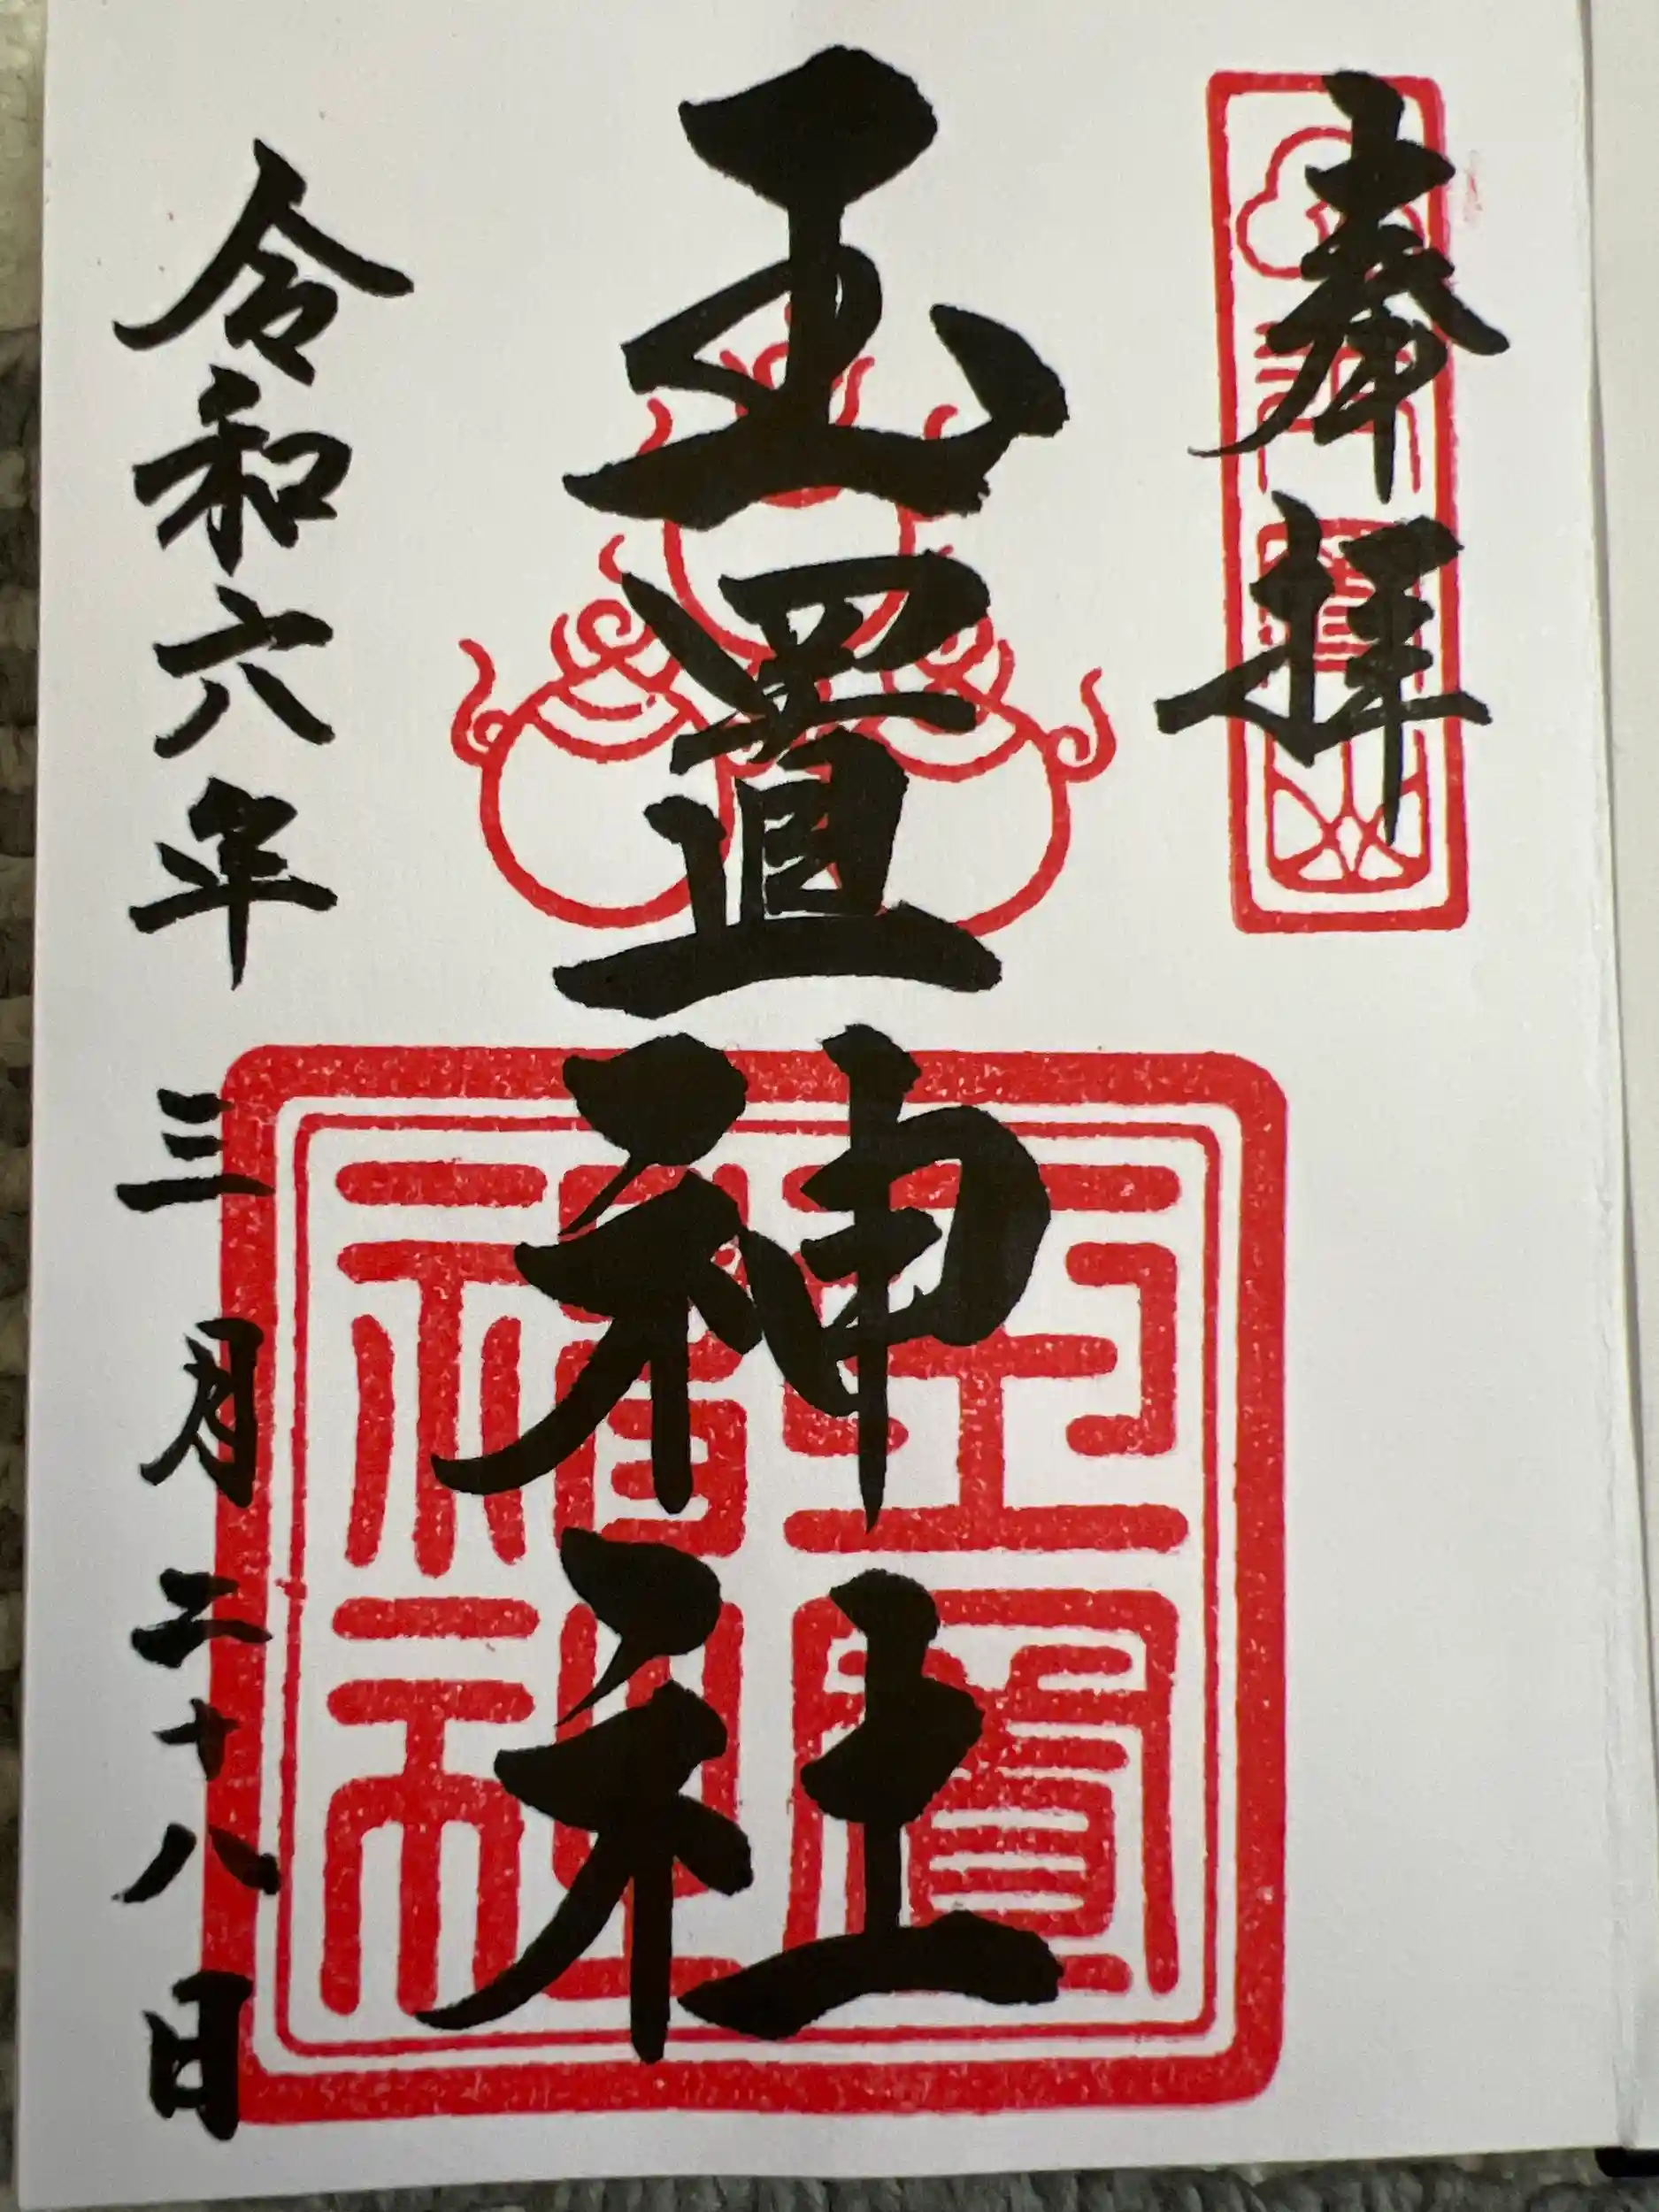 奉拝
玉置神社
令和六年三月二十八日